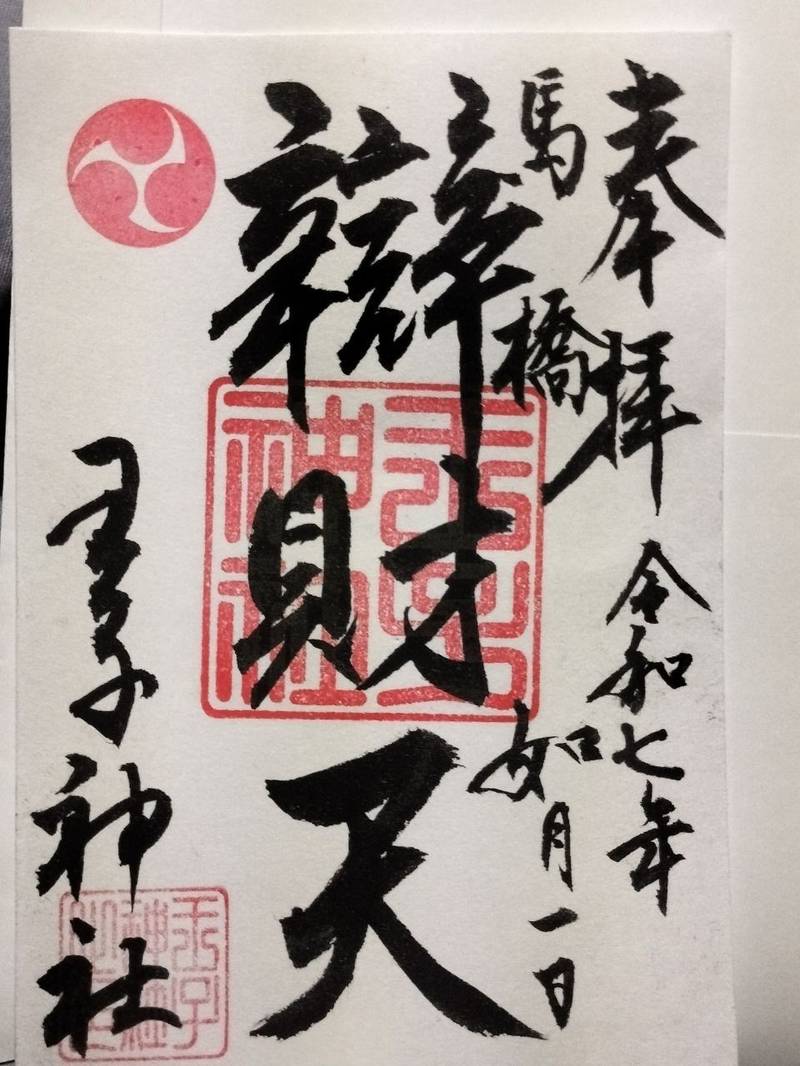 奉拝 令和七年
馬橋
如月一日
辯財天
王子神社
王子神社